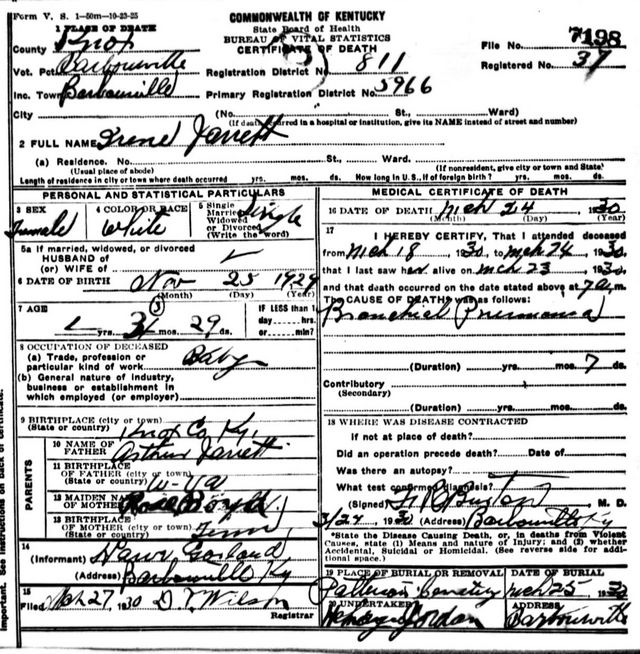 Form V. S. 1-50m-10-23-25
COMMONWEALTH OF KENTUCKY
State Board of Health
BUREAU OF VITAL STATISTICS
CERTIFICATE OF DEATH
1 PLACE OF DEATH
County Knox
File No. 7198
Vot. Pct. Barbourville
Registration District No. 811
Registered No. 37
Inc. Town Barbourville
Primary Registration District No. 5966
City (No. St., Ward)
(If death occurred in a hospital or institution, give its NAME instead of street and number)
2 FULL NAME Irene Jarrett
(a) Residence. No. St., Ward.
(Usual place of abode) (If nonresident, give city or town and State)
Length of residence in city or town where death occurred yrs. mos. ds. How long in U. S., if of foreign birth? yrs. mos. ds.
PERSONAL AND STATISTICAL PARTICULARS
3 SEX Female
4 COLOR OR RACE White
5 Single Married Widowed or Divorced (Write the word) Single
5a If married, widowed, or divorced
HUSBAND of
(or) WIFE of
6 DATE OF BIRTH Nov 25 1929
(Month) (Day) (Year)
7 AGE yrs. 3 mos. 29 ds.
IF LESS than 1 day --- hrs. or --- min?
8 OCCUPATION OF DECEASED
(a) Trade, profession or particular kind of work Baby
(b) General nature of industry, business or establishment in which employed (or employer)
9 BIRTHPLACE (city or town)
(State or country) Knox Co, Ky.
PARENTS
10 NAME OF FATHER Arthur Jarrett
11 BIRTHPLACE OF FATHER (city or town)
(State or country) W-Va
12 MAIDEN NAME OF MOTHER Boyd
13 BIRTHPLACE OF MOTHER (city or town)
(State or country) Tenn
14 (Informant) Garland
(Address) Barbourville Ky
15 Filed Mch 27, 1930 D. V. Wilson
Registrar
MEDICAL CERTIFICATE OF DEATH
16 DATE OF DEATH Mch 24, 1930
(Month) (Day) (Year)
17 I HEREBY CERTIFY, That I attended deceased
from Mch 18, 1930, to Mch 24, 1930,
that I last saw her alive on Mch 23, 1930,
and that death occurred on the date stated above at 7 a m.
The CAUSE OF DEATH was as follows:
Bronchial Pneumonia
(Duration) yrs. mos. 7 ds.
Contributory
(Secondary)
(Duration) yrs. mos. ds.
18 WHERE WAS DISEASE CONTRACTED
if not at place of death?
Did an operation precede death? Date of
Was there an autopsy?
What test confirmed diagnosis?
(Signed) Burton M. D.
3/24, 1930 (Address) Barbourville Ky
*State the Disease Causing Death, or, in deaths from Violent
Causes, state (1) Means and nature of Injury; and (2) whether
Accidental, Suicidal or Homicidal. (See reverse side for additional space.)
19 PLACE OF BURIAL OR REMOVAL Patterson Cemetery
DATE OF BURIAL Mch 25, 1930
20 UNDERTAKER Jordan
ADDRESS Barbourville
Important. See instructions on back of certificate.